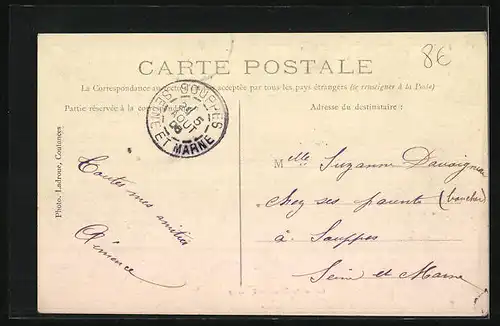 8€
CARTE POSTALE
La Correspondance au recto acceptée par tous les pays étrangers (se renseigner à la Poste)
Partie réservée à la correspondance
Adresse du destinataire :
SOUPPES
SEINE ET MARNE
Toutes mes amitiés
Clémence
Mlle Suzanne
chez ses parents (boucher)
à Souppes
Seine et Marne
Photo. Ladroue, Coutances